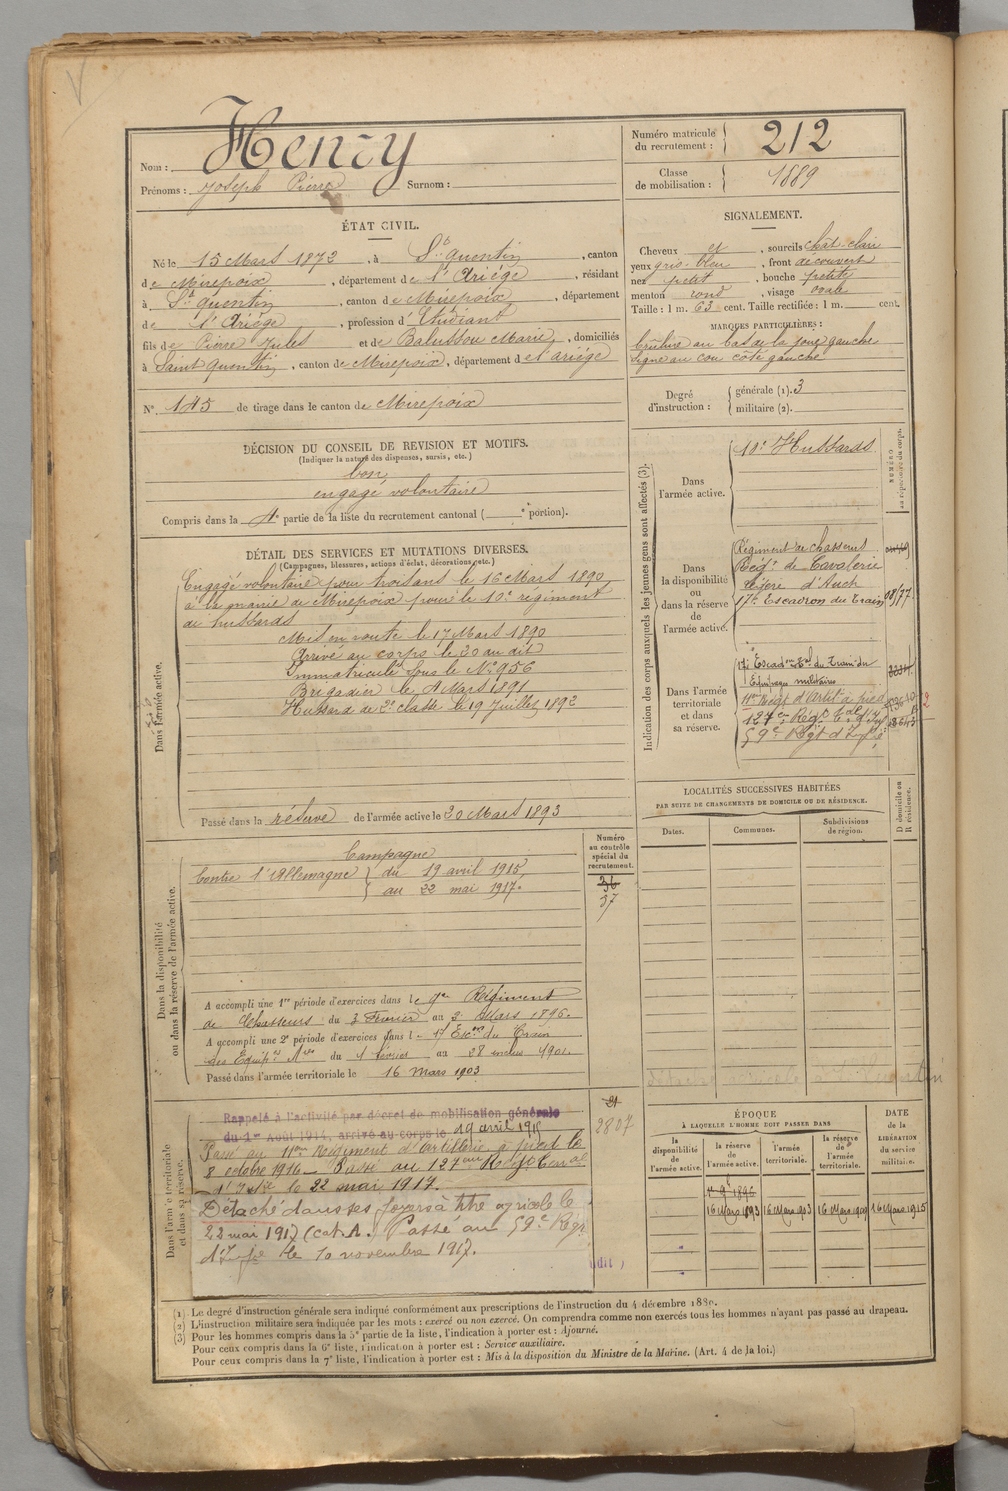 Nom : Henry
Prénoms : Joseph Pierre Surnom :
Numéro matricule du recrutement : 212
Classe de mobilisation : 1889
ÉTAT CIVIL.
Né le 15 Mars 1872, à St quentin, canton
de Mirepoix, département de l'Ariége, résidant
à St quentin, canton de Mirepoix, département
de l'Ariège, profession d'Etudiant
fils de Pierre Jules et de Balussou Marie, domiciliés
à Saint quentin, canton de Mirepoix, département de l'ariége
N° 145 de tirage dans le canton de Mirepoix
SIGNALEMENT.
Cheveux et, sourcils chât-clair
yeux gris-bleu, front découvert
nez petit, bouche petite
menton rond, visage ovale
Taille : 1 m. 63 cent. Taille rectifiée : 1 m. cent.
MARQUES PARTICULIÈRES :
brûlure au bas de la joue gauche
signe au cou côté gauche
Degré d'instruction :
générale (1). 3
militaire (2).
DÉCISION DU CONSEIL DE REVISION ET MOTIFS.
(Indiquer la nature des dispenses, sursis, etc.)
bon
engagé volontaire
Compris dans la 4e partie de la liste du recrutement cantonal ( e portion).
DÉTAIL DES SERVICES ET MUTATIONS DIVERSES.
(Campagnes, blessures, actions d'éclat, décorations, etc.)
Dans l'armée active.
Engagé volontaire pour trois ans le 16 Mars 1890,
à la mairie de Mirepoix pour le 10e régiment
de hussards
Mis en route le 17 Mars 1890
Arrivé au corps le 20 au dit
Immatriculé sous le N° 956
Brigadier le 4 Mars 1891
Hussard de 2e classe le 19 Juillet 1892
Passé dans la réserve de l'armée active le 30 Mars 1893
Indication des corps auxquels les jeunes gens sont affectés (3).
NUMÉRO au répertoire du corps.
Dans l'armée active.
10e Hussards
Dans la disponibilité ou dans la réserve de l'armée active.
Régiment de chasseurs
Régt de Cavalerie
légère d'Auch
17e Escadron du Train
Dans l'armée territoriale et dans sa réserve.
17e Escadon Tal du Train des
Equipages militaires
11e Régt d'Artie à pied
127e Régt Tal d'Inf
59e Régt d'Infie
LOCALITÉS SUCCESSIVES HABITÉES
PAR SUITE DE CHANGEMENTS DE DOMICILE OU DE RÉSIDENCE.
Dates.
Communes.
Subdivisions de région.
D domicile ou R résidence.
Numéro au contrôle spécial du recrutement.
36
37
Dans la disponibilité ou dans la réserve de l'armée active.
Campagne
Contre l'Allemagne du 19 avril 1915,
au 22 mai 1917.
A accompli une 1re période d'exercices dans le 9e Régiment
de Chasseurs du 3 Février au 2 Mars 1896.
A accompli une 2e période d'exercices dans l 17 Escon du Train
des Equipes Mres du 1 février au 28 inclus 1901.
Passé dans l'armée territoriale le 16 mars 1903
Dans l'armée territoriale et dans sa réserve.
Rappelé à l'activité par décret de mobilisation générale
du 1er Août 1914, arrivé au corps le 19 avril 1915
Passé au 11eme Régiment d'artillerie à pied le
8 octobre 1916 - Passé au 127eme Régt Terral
d'Infie le 22 mai 1917.
Détaché dans ses foyers à titre agricole le
22 mai 1917 (cat. A.) Passé au 59e Régt
d'Infie le 10 novembre 1917.
21
2807
ÉPOQUE
À LAQUELLE L'HOMME DOIT PASSER DANS
la disponibilité de l'armée active.
la réserve de l'armée active.
l'armée territoriale.
la réserve de l'armée territoriale.
DATE DE LA LIBÉRATION du service militaire.
16 Mars 1893
16 Mars 1903
16 Mars 1909
16 Mars 1915
(1) Le degré d'instruction générale sera indiqué conformément aux prescriptions de l'instruction du 4 décembre 1889.
(2) L'instruction militaire sera indiquée par les mots : exercé ou non exercé. On comprendra comme non exercés tous les hommes n'ayant pas passé au drapeau.
(3) Pour les hommes compris dans la 5e partie de la liste, l'indication à porter est : Ajourné.
Pour ceux compris dans la 6e liste, l'indication à porter est : Service auxiliaire.
Pour ceux compris dans la 7e liste, l'indication à porter est : Mis à la disposition du Ministre de la Marine. (Art. 4 de la loi.)